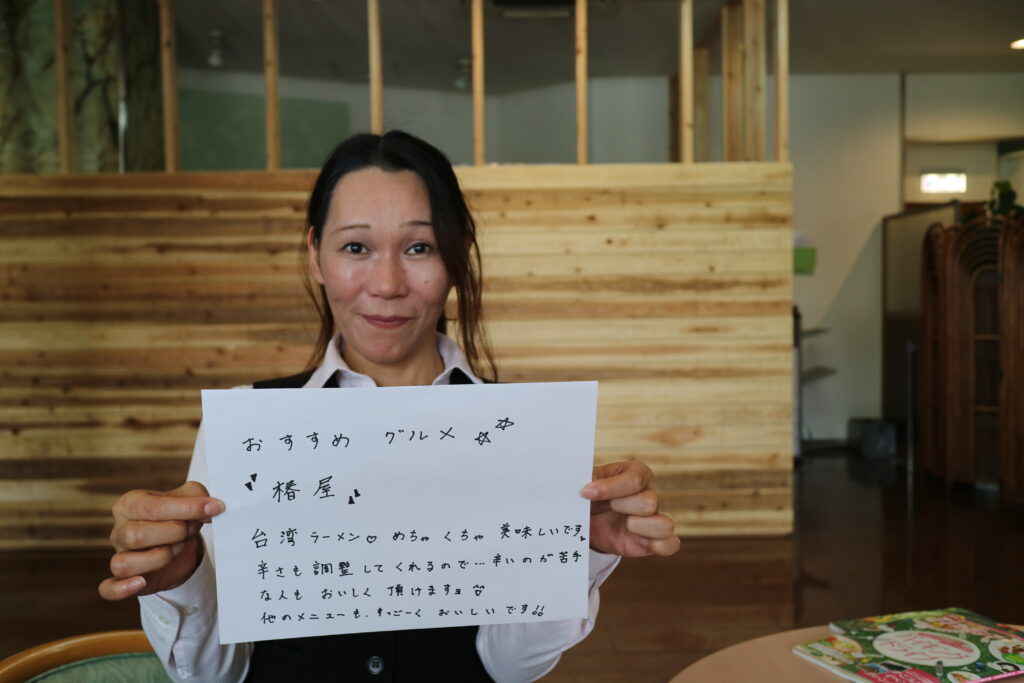 おすすめ グルメ ☆☆
〝椿屋〟
台湾ラーメン♡ めちゃくちゃ 美味しいです。
辛さも調整してくれるので…辛いのが苦手
な人も おいしく 頂けますョ
他のメニューも、すっごーく おいしいです!!